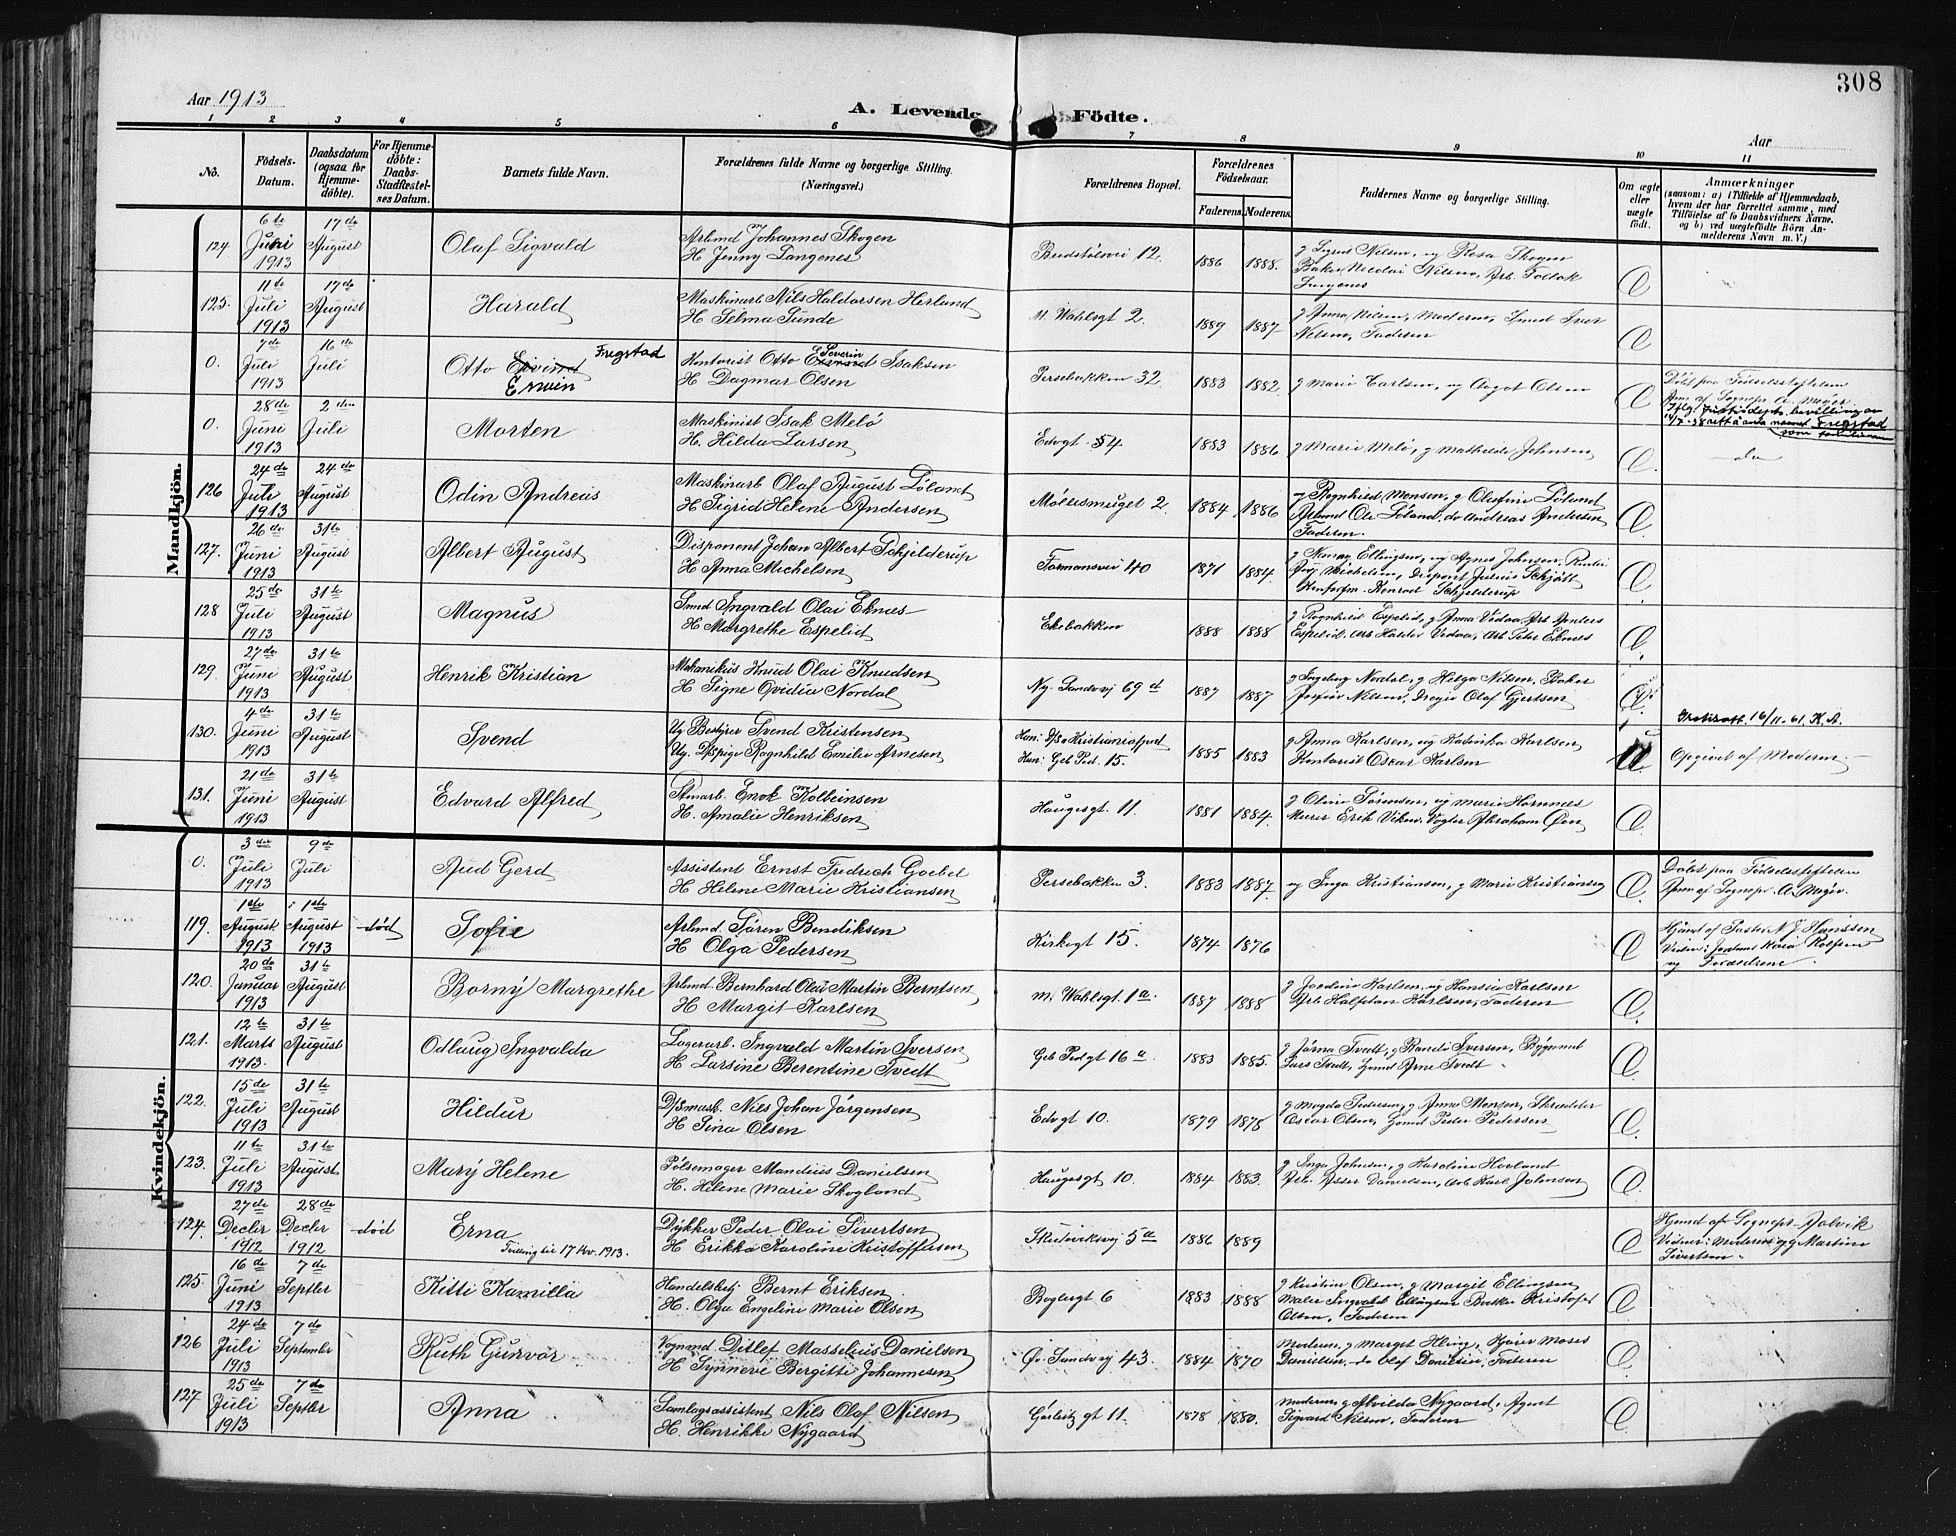 308
Aar 1913
A. Levende Födte.
Aar
1 2 3 4 5 6 7 8 9 10 11
No.
Födsels-Datum.
Daabsdatum (ogsaa for Hjemme-döbte).
For Hjemme-döbte: Daabs-Stadfæstel-ses Datum.
Barnets fulde Navn.
Forældrenes fulde Navne og borgerlige Stilling.
(Næringsvei.)
Forældrenes Bopæl.
Forældrenes Födselsaar.
Faderens. Moderens.
Faddernes Navne og borgerlige Stilling.
Om ægte eller uægte födt.
Anmærkninger
(saasom: a) i Tilfælde af Hjemmedaab,
hvem der har forrettet samme, med
Tilföielse af to Daabsvidners Navne,
og b) ved uægtefödte Börn An-
melderens Navn m. V.)
Mandkjön.
124. 6te Juni 1913 17de August Olaf Sigvald Arbmd Johannes Skogen
H Jenny Langenes 12. 1886 1888. Rosa Skogen
125. 11te Juli 1913 17de August Harald Maskinarb Nils Haldorsen Herland
H Selma Sunde M. Wahlsgt 2. 1889 1887 g Anna Nilsen, Moderen, Smed Iver
Nilsen, Faderen
0. 7de Juli 1913 16de Juli Otto Eivind Fregstad
Erwin
Kontorist Otto Severin Isaksen
H Dagmar Olsen Persebakken 32. 1883 1882. g Marie Carlsen, ug Aagot Olsen Döbt paa Fødselsstiftelsen
af Sognepr. A. Meyer.
Iflg. Justisdepts. bevilling av
rett å anta navnet Fregstad
0. 28de Juni 1913 2den Juli Morten Maskinist Isak Melø
H. Hilda Larsen Edvgt. 54 1883 1886 g Marie Melø, g Mathilde Johnsen do
126 24de Juli 1913 24de August Odin Andreas Maskinarb Olaf August Løland
H Sigrid Helene Andersen Møllesmuget 2. 1884 1886 ug Ragnhild Monsen, g Olefine Løland
Arbmd Ole Løland, do Andreas Andersen
Faderen.
127. 26de Juni 1913 31te August Albert August Disponent Johan Albert Schjelderup
H Anna Michelsen Formansvei 40 1871 1884 Ellingsen, ug Agnes Johnsen,
Michelsen, Julius Schjött
Konrad Schjelderup
128 25de Juli 1913 31te August Magnus Smed Ingvald Olai Eknes
H Margrethe Espelid Ekebakken 1888 1888 g Ragnhild Espelid, g Anna Vedaa, Arb Anders
Espelid, Arb Halder Vedaa, Arb Peder Eknes
129. 27de Juni 1913 31te August Henrik Kristian Mekanikus Knud Olai Knudsen
H Signe Ovidia Nordal Ny. Sandvej 69d 1887 1887 g Ingeborg Nordal, g Helga Nilsen, Baker
Josefur Nilsen, Olaf Gjertsen
130. 4de Juni 1913 31te August Svend Ug Bestyrer Svend Kristensen
Ug. Ragnhild Emilie Arnesen Han: D/S Kristianiafjord
Hun: Geb Ped. 15. 1885 1883 g Anna Karlsen, ug Karlsen
Kontorist Oscar Karlsen 16/11-61. K.A.
Opgivet af Moderen
131. 21de Juni 1913 31te August Edvard Alfred Stenarb. Enok Kolbeinsen
H. Amalie Henriksen Haugesgt 11. 1881 1884. g Oline Sørensen, ug Marie Hornnes
Murer Erik Viken, Vogter Abraham Øen
Kvindekjön.
0. 3die Juli 1913 9de Juli Aud Gerd Assistent Ernst Fredrich Goebel
H Helene Marie Kristiansen Persebakken 3. 1883 1887. ug Inga Kristiansen, g Marie Kristiansen Döbt paa Fødselsstiftelsen
af Sognepr. A. Meyer.
119. 1ste August 1913 1ste August 1913 død Sofie Arbmd. Søren Bendiksen
H Olga Pedersen Kirkegt 15. 1874 1876 Hjmd af Pastor N. J. Hanssen
Vidner: Jordmor Kaia Rolfsen
og Forældrene.
120. 20de Januar 1913 31te August Borny Margrethe Arbmd. Bernhard Olai Martin Berntsen
H Margit Karlsen M. Wahlsgt. 1a. 1887 1888 Karlsen, ug Hansine Karlsen
Arb Halfdan Karlsen, Faderen
121. 12te Marts 1913. 31te August Odlaug Ingvalda Lagerarb. Ingvald Martin Iversen
H Larsine Berentine Tvedt Geb Pedgt 16a 1883 1885. g Jørna Tvedt, g Randi Iversen,
Lars Tvedt, Arne Tvedt
122. 15de Juli 1913 31te August Hildur D/Smask. Nils Johan Jørgensen
H Tina Olsen Edvgt 10. 1879 1878 g Magda Pedersen, g Anna Monsen, Skrædder
Oscar Olsen, Peder Pedersen
123. 11te Juli 1913 31te August Mary Helene Pølsemager Mandius Danielsen
H. Helene Marie Skogland Haugesgt 10. 1884 1883. g Inga Johnsen, g Karoline Hovland
Arb. Asser Danielsen, Arb Karl Johnsen
124. 27de Decbr 1912 28de Decbr 1912 død Erna
Tvilling til 17 Nov. 1913.
Dykker Peder Olai Sivertsen
H Erikka Karoline Kristoffersen Skuteviksvj 5a 1886 1889 Hjmd af Sognepr. Jolvik
Vidner: Moderen og g Martine
Sivertsen.
125. 16de Juni 1913 7de Septbr Kitti Kamilla Handelsbtj Bernt Eriksen
H. Olga Engeline Marie Olsen Boglergt 6 1883 1888 g Kristine Olsen, g Margit Ellingsen
Maler Ingvald Ellingsen Kristofer
Olsen, Faderen
126 24de Juli 1913 7de September Ruth Gunvor Vognmd Ditlef Masselius Danielsen
H Synneve Bergitte Johannesen Øv. Sandvj 43. 1884 1870 Moderen, g Marget Hling, Kjører Moses
Danielsen, do Olaf Danielsen, Faderen
127 25de Juli 1913 7de Septbr Anna Samlagsassistent Nils Olaf Nilsen
H. Henrikke Nygaard Gørbitzgt 11. 1878 1880. Moderen, g Alvilda Nygaard, Agent
Sigvard Nilsen, Faderen